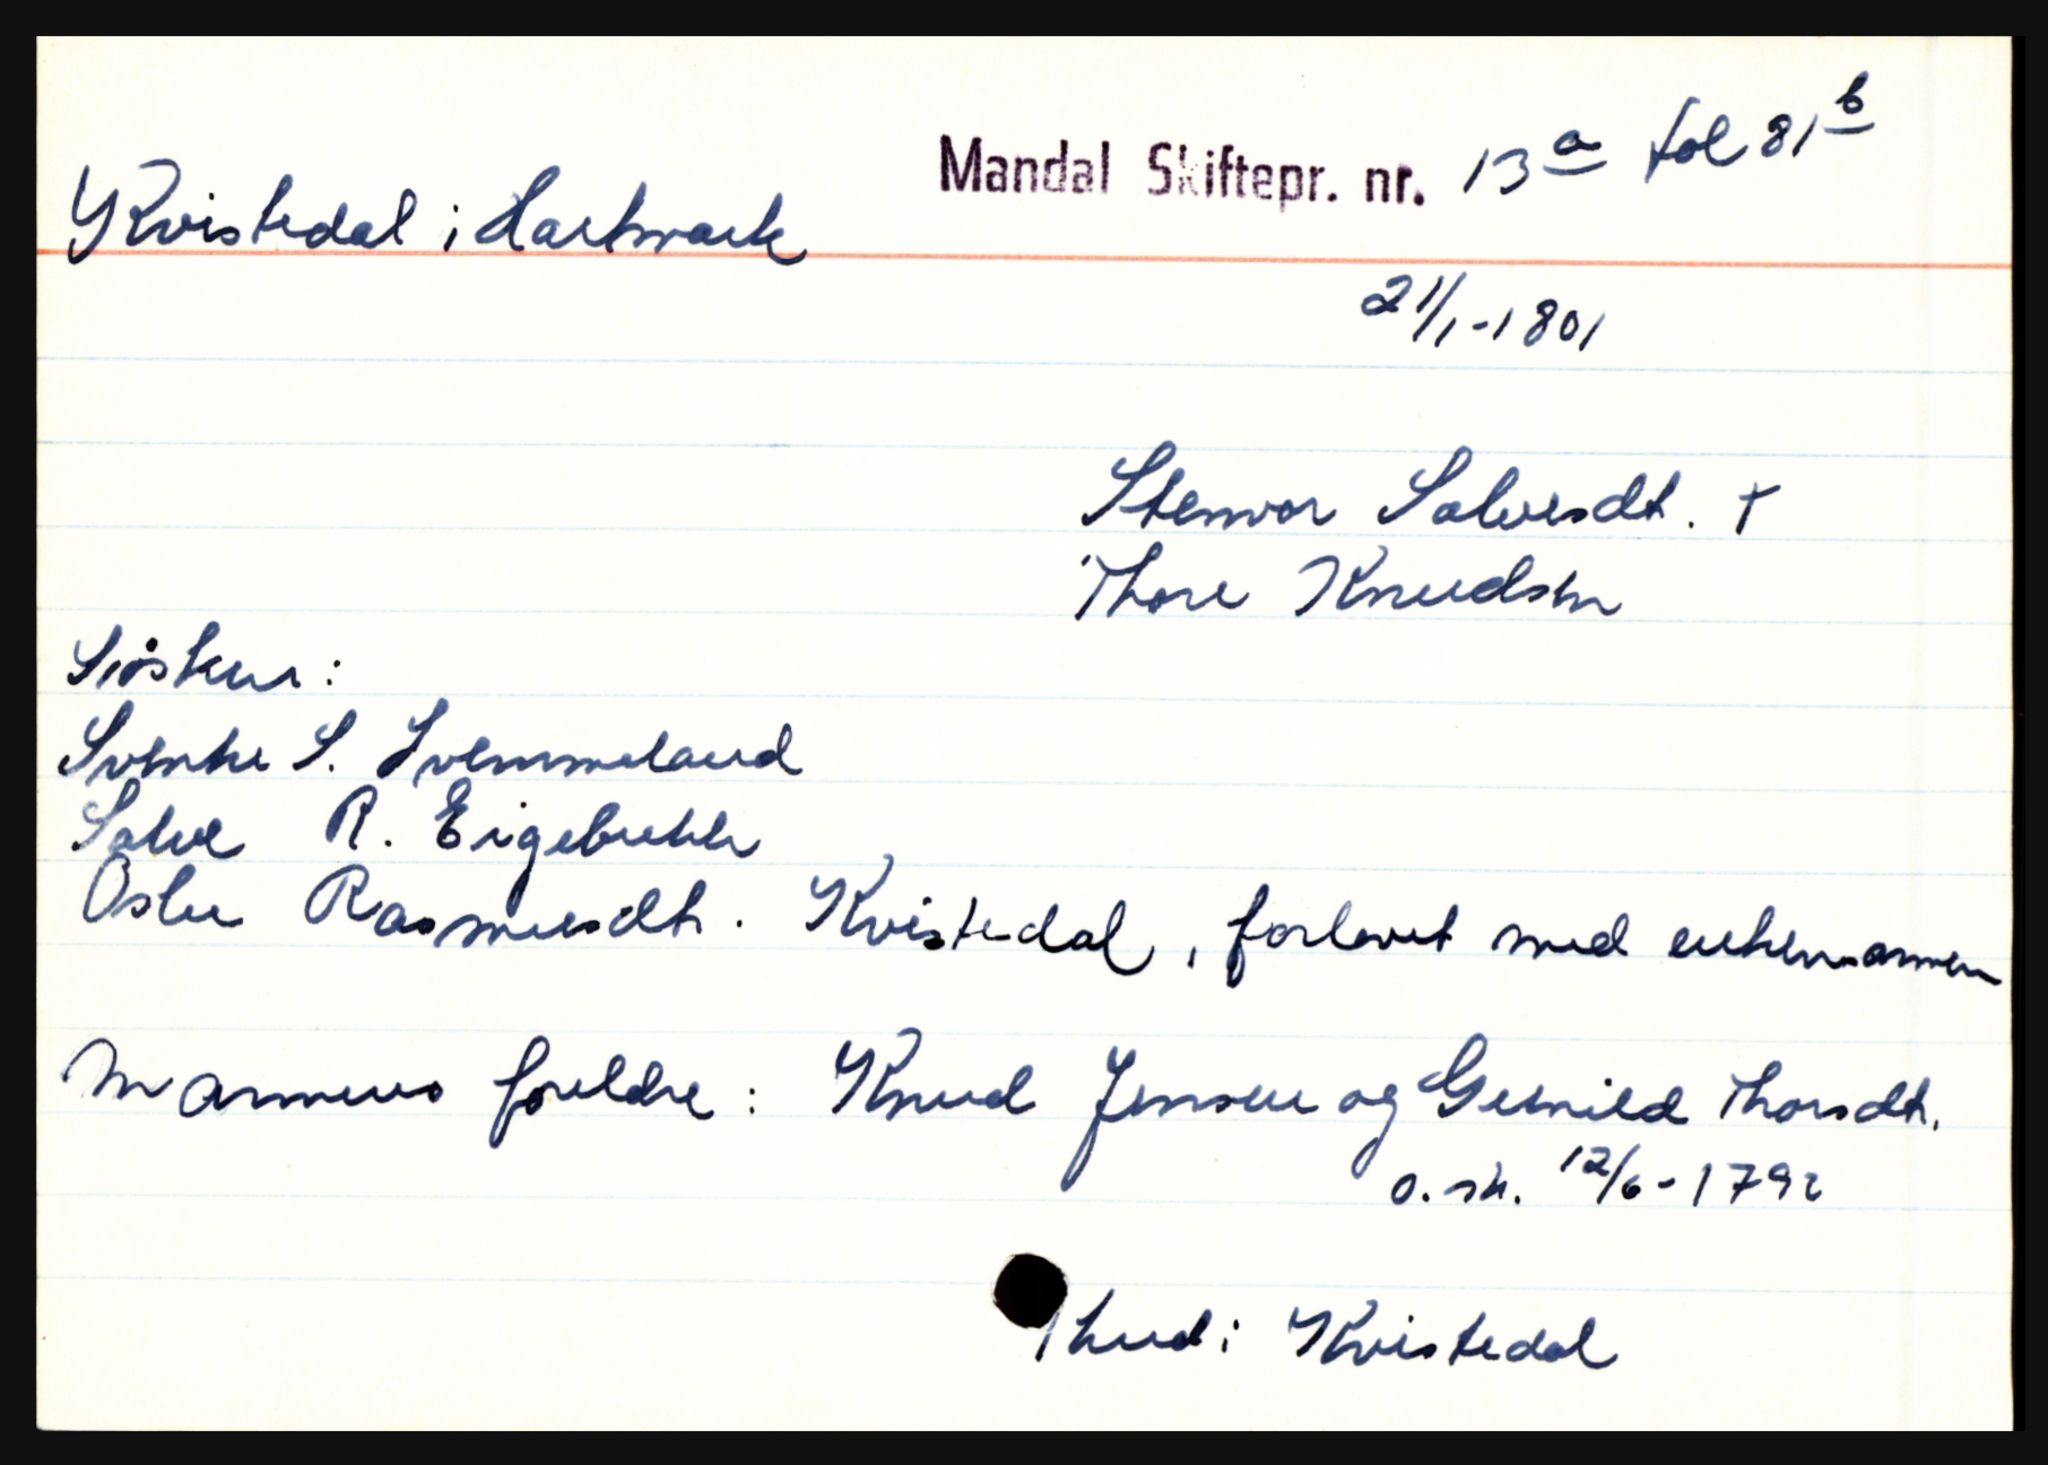 Mandal Skiftepr. nr. 13 a fol 81 b
Kvistedal i Hartmark
21/1-1801
Stenvor Salvesdt. †
Thore Knudsen
Siøsken:
Svenke S. Svenneland
Salve R. Eigebrekk
Oslee Rasmusdt. Kvistedal, forlovet med enkemannen
Mannens foreldre: Knud Jensen og Gunild Thorsdt.
o.sk. 12/6-1792
i Kvistedal